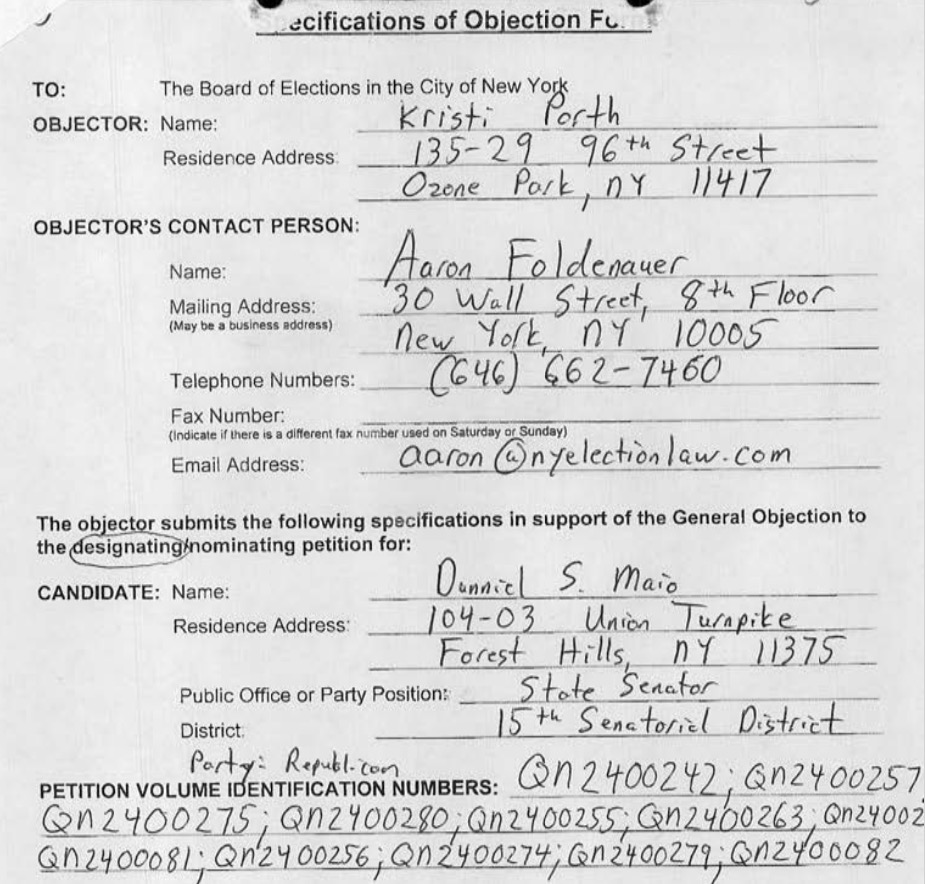 Specifications of Objection Form
TO: The Board of Elections in the City of New York
OBJECTOR: Name: Kristi Porth
Residence Address: 135-29 96th Street
Ozone Park, NY 11417
OBJECTOR'S CONTACT PERSON:
Name: Aaron Foldenauer
Mailing Address: 30 Wall Street, 8th Floor
(May be a business address)
New York, NY 10005
Telephone Numbers: (646) 662-7460
Fax Number:
(Indicate if there is a different fax number used on Saturday or Sunday)
Email Address: aaron@nyelectionlaw.com
The objector submits the following specifications in support of the General Objection to
the designating/nominating petition for:
CANDIDATE: Name: Danniel S. Maio
Residence Address: 104-03 Union Turnpike
Forest Hills, NY 11375
Public Office or Party Position: State Senator
District: 15th Senatorial District
Party: Republican
PETITION VOLUME IDENTIFICATION NUMBERS: QN2400242; QN2400257
QN2400275; QN2400280; QN2400255; QN2400263; QN24002
QN2400081; QN2400256; QN2400274; QN2400279; QN2400082